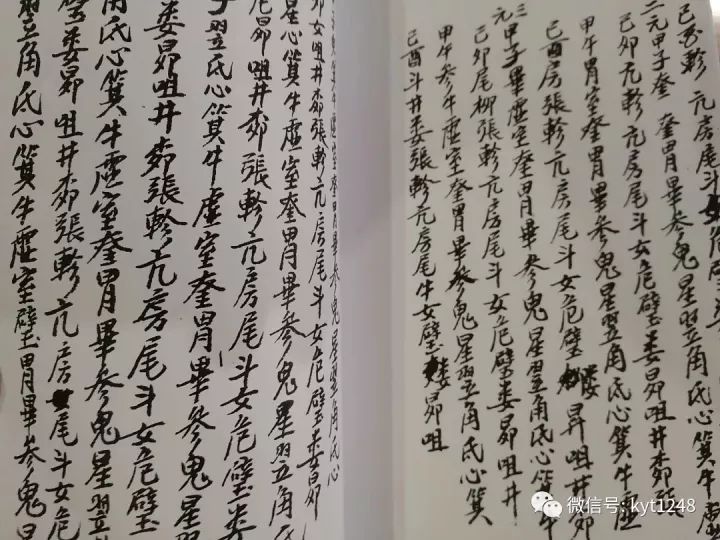 軫 亢房尾斗女
二元甲子奎 奎胃畢參鬼星翌角氐心箕牛虛
己卯亢軫亢房尾斗女危壁娄昴咀井郊張
甲午胃室奎胃畢參鬼星翌角氐心箕牛虛
己酉房張軫亢房尾斗女危壁娄昇咀井郊
三元甲子畢虛室奎胃畢參鬼星翌角氐心箕牛
己卯尾柳張軫亢房尾斗女危壁娄昴咀井
甲午參牛虛室奎胃畢參鬼星翌角氐心箕
己酉斗井娄張軫亢房尾牛女壁娄昴咀
箕牛虛室奎胃畢參鬼星翌角氐心
女咀井郊張軫亢房尾斗女危壁娄昴
星心箕牛虛室奎胃畢參鬼星翌角氐
昴咀井郊張軫亢房尾斗女危壁娄
子翌氐心箕牛虛室奎胃畢參鬼星
娄昴咀井郊張軫亢房尾斗女危壁
角氐心箕牛虛室奎胃畢參鬼星翌
娄昴咀井郊張軫亢房尾斗女危
翌角氐心箕牛虛室壁胃畢參鬼星
微信号: kyt1248